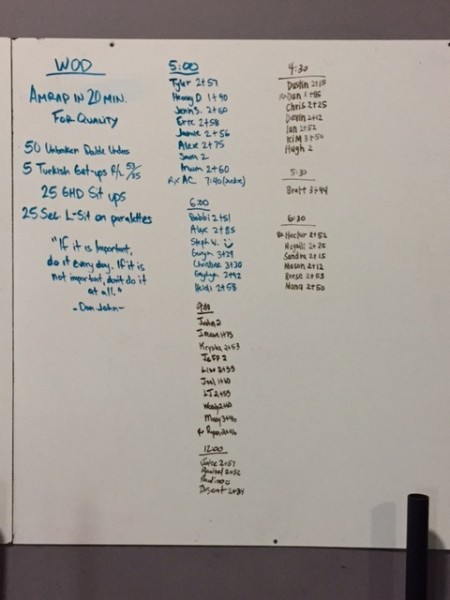 WOD
AMRAP IN 20 MIN.
FOR QUALITY
50 Unbroken Double Unders
5 Turkish Get-ups R/L 53/35
25 GHD Sit ups
25 Sec L-Sit on parallettes
"If it is Important,
do it every day. If it is
not important, don't do it
at all."
- Dan John -
5:00
Tyler 2+57
Henry D 1+90
Jenn S. 2+60
Eric 2+58
Jamie 2+56
Alex 2+75
2
2+60
Rx AC 7:40
6:00
Bobbi 2+51
Alyx 2+85
Steph V.
Gwyn 3+29
Christine 3+30
Heidi 2+58
9:00
John 2
1+75
Krysha 2+53
Jeff 2
Lisa 2+55
Joel 1+60
LJ 2+55
Wendy 2+60
Missy
Rx Ryan
12:00
2+57
4:30
Dustin
Dan
Chris 2+25
Devin 2+12
Ian 2+52
Kim 3+50
Hugh 2
5:30
Brett 3+44
6:30
Rx Hector 2+52
Sandra 2+15
Mason 2+12
Reese 2+53
Nana 2+50